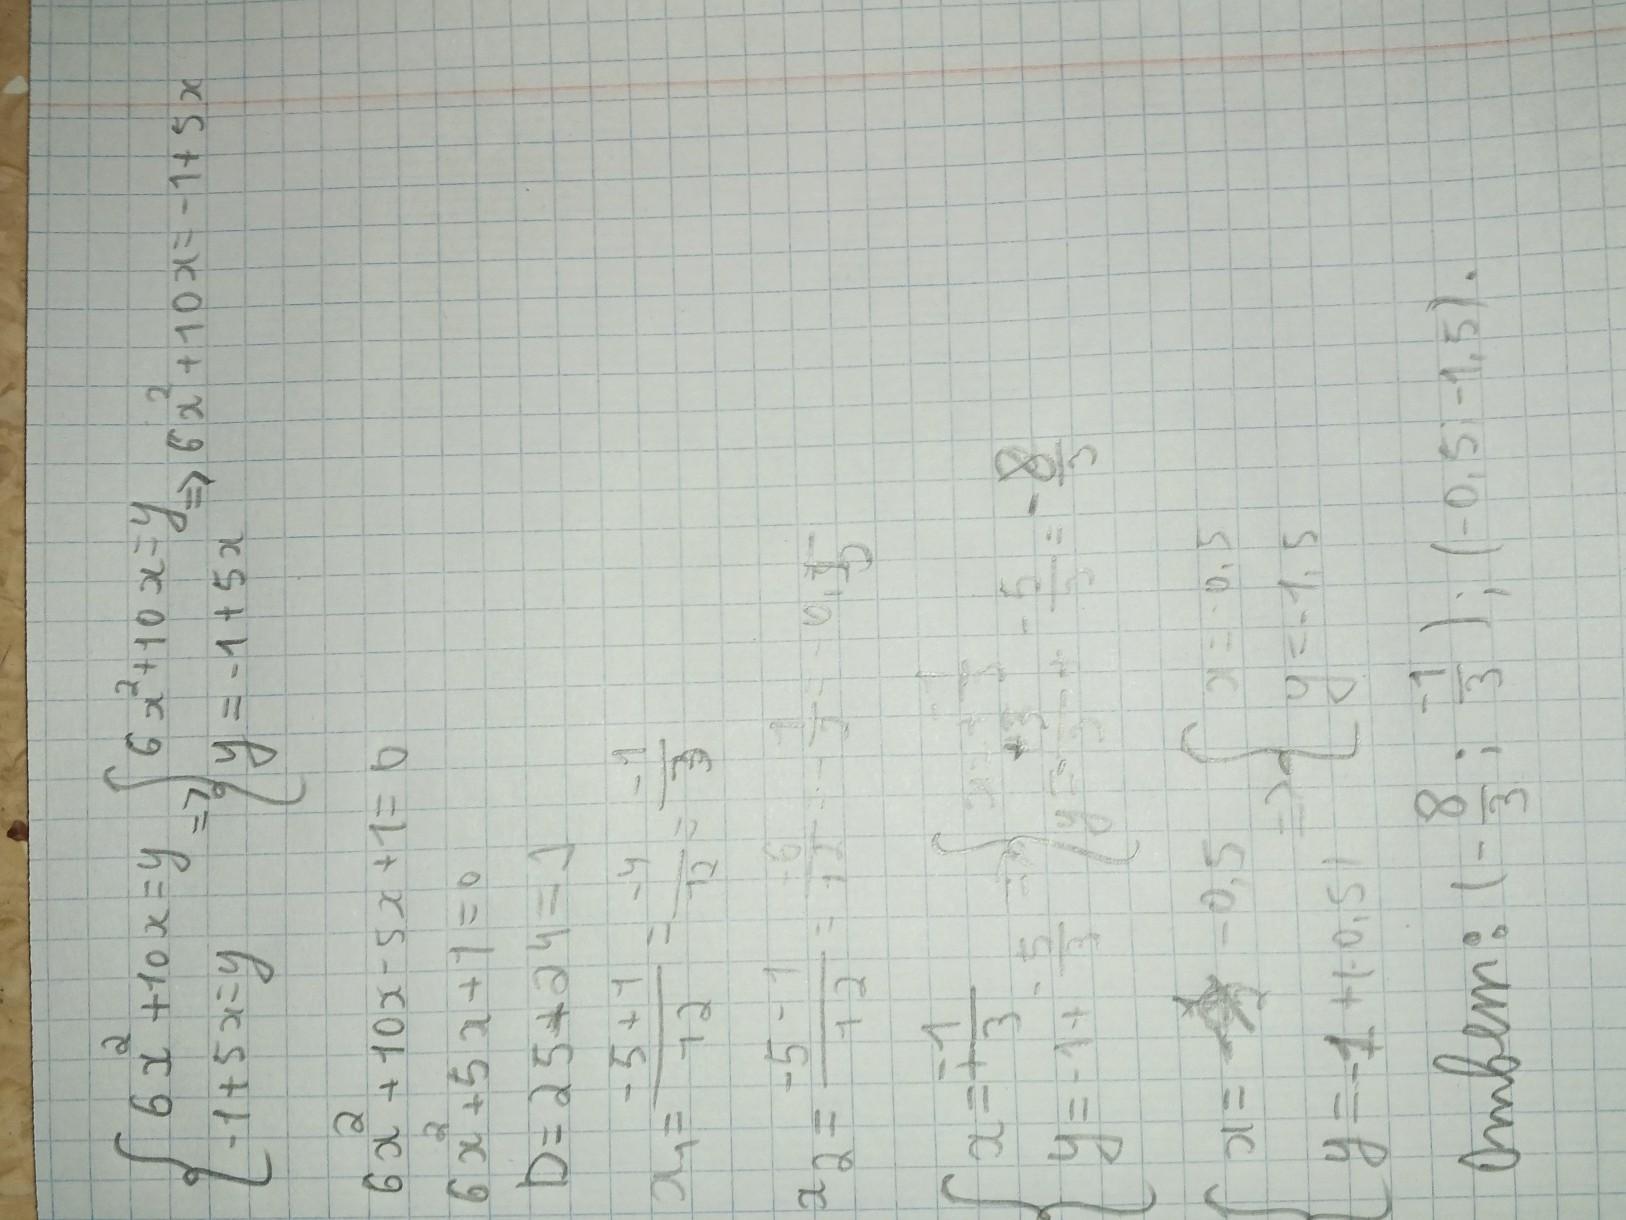 {6x²+10x=y => {6x²+10x=y => 6x²+10x=-1+5x
{-1+5x=y {y=-1+5x
6x²+10x-5x+1=0
6x²+5x+1=0
D=25+24=1
x₁=(-5+1)/12=-4/12=-1/3
x₂=(-5-1)/12=-6/12=-1/2=-0,5
{x=-1/3
{y=-1+ -5/3 -5/3=-8/3
{x=-0,5 => {x=-0,5
{y=-1 {y=-1,5
Ответ: (-8/3; -1/3); (-0,5; -1,5).